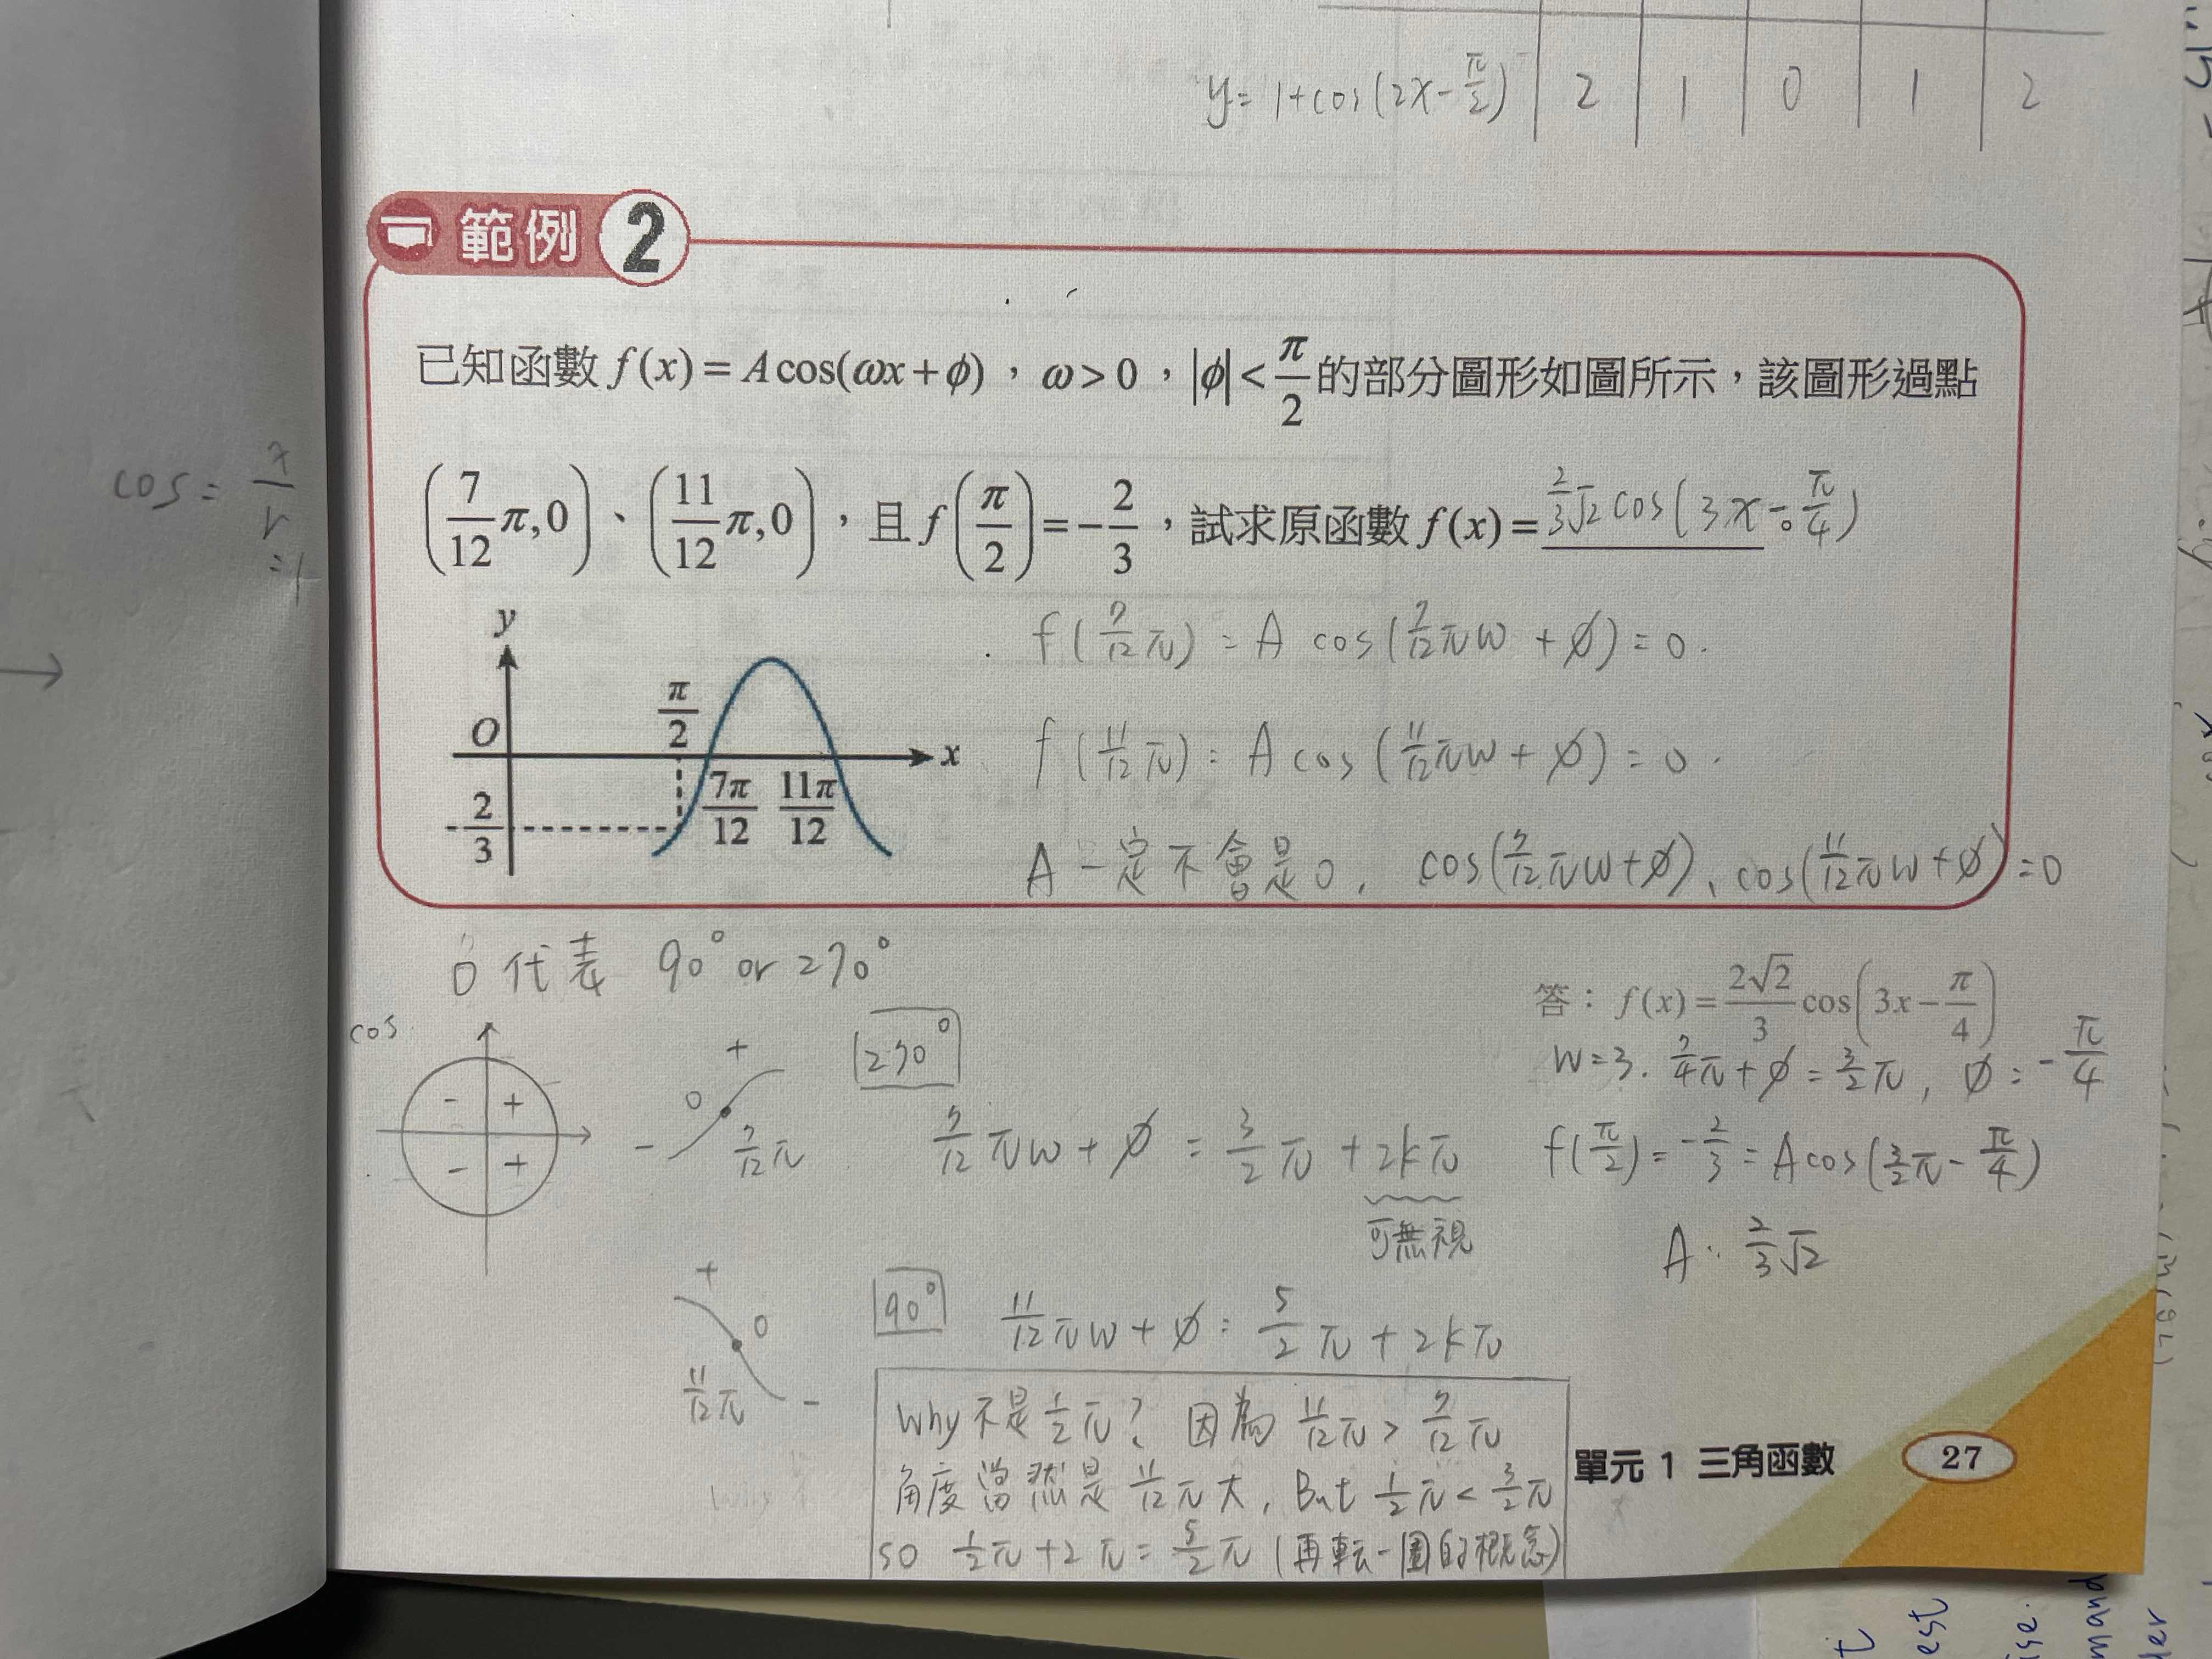 y = 1+cos(2x-π/2) | 2 | 1 | 0 | 1 | 2
範例 2
已知函數 f(x) = A cos(ωx+ϕ),ω>0,|ϕ|<π/2 的部分圖形如圖所示,該圖形過點
(7/12 π,0)、(11/12 π,0),且 f(π/2) = -2/3,試求原函數 f(x) = 2/3√2 cos(3x-π/4)
cos =
=1
y
O
π/2
x
7π/12 11π/12
-2/3
f(7/12π) = A cos(7/12πw + ϕ) = 0.
f(11/12π) = A cos(11/12πw + ϕ) = 0.
A 一定不會是0, cos(7/12πw+ϕ)、cos(11/12πw+ϕ) = 0
0 代表 90° or 270°
答: f(x) = 2√2/3 cos(3x-π/4)
w=3. 7/4π+ϕ = 3/2π, ϕ = -π/4
f(π/2) = -2/3 = A cos(3/2π-π/4)
A = 2/3√2
cos
- +
- +
+
0
-
7/12π
270°
7/12πw + ϕ = 3/2π + 2kπ
可無視
+
0
11/12π -
90°
11/12πw + ϕ = 5/2π + 2kπ
Why 不是 1/2π? 因為 11/12π > 7/12π
角度當然是 11/12π大, But 1/2π < 3/2π
so 1/2π+2π = 5/2π (再転一圈的概念)
單元 1 三角函數 27
est
mand